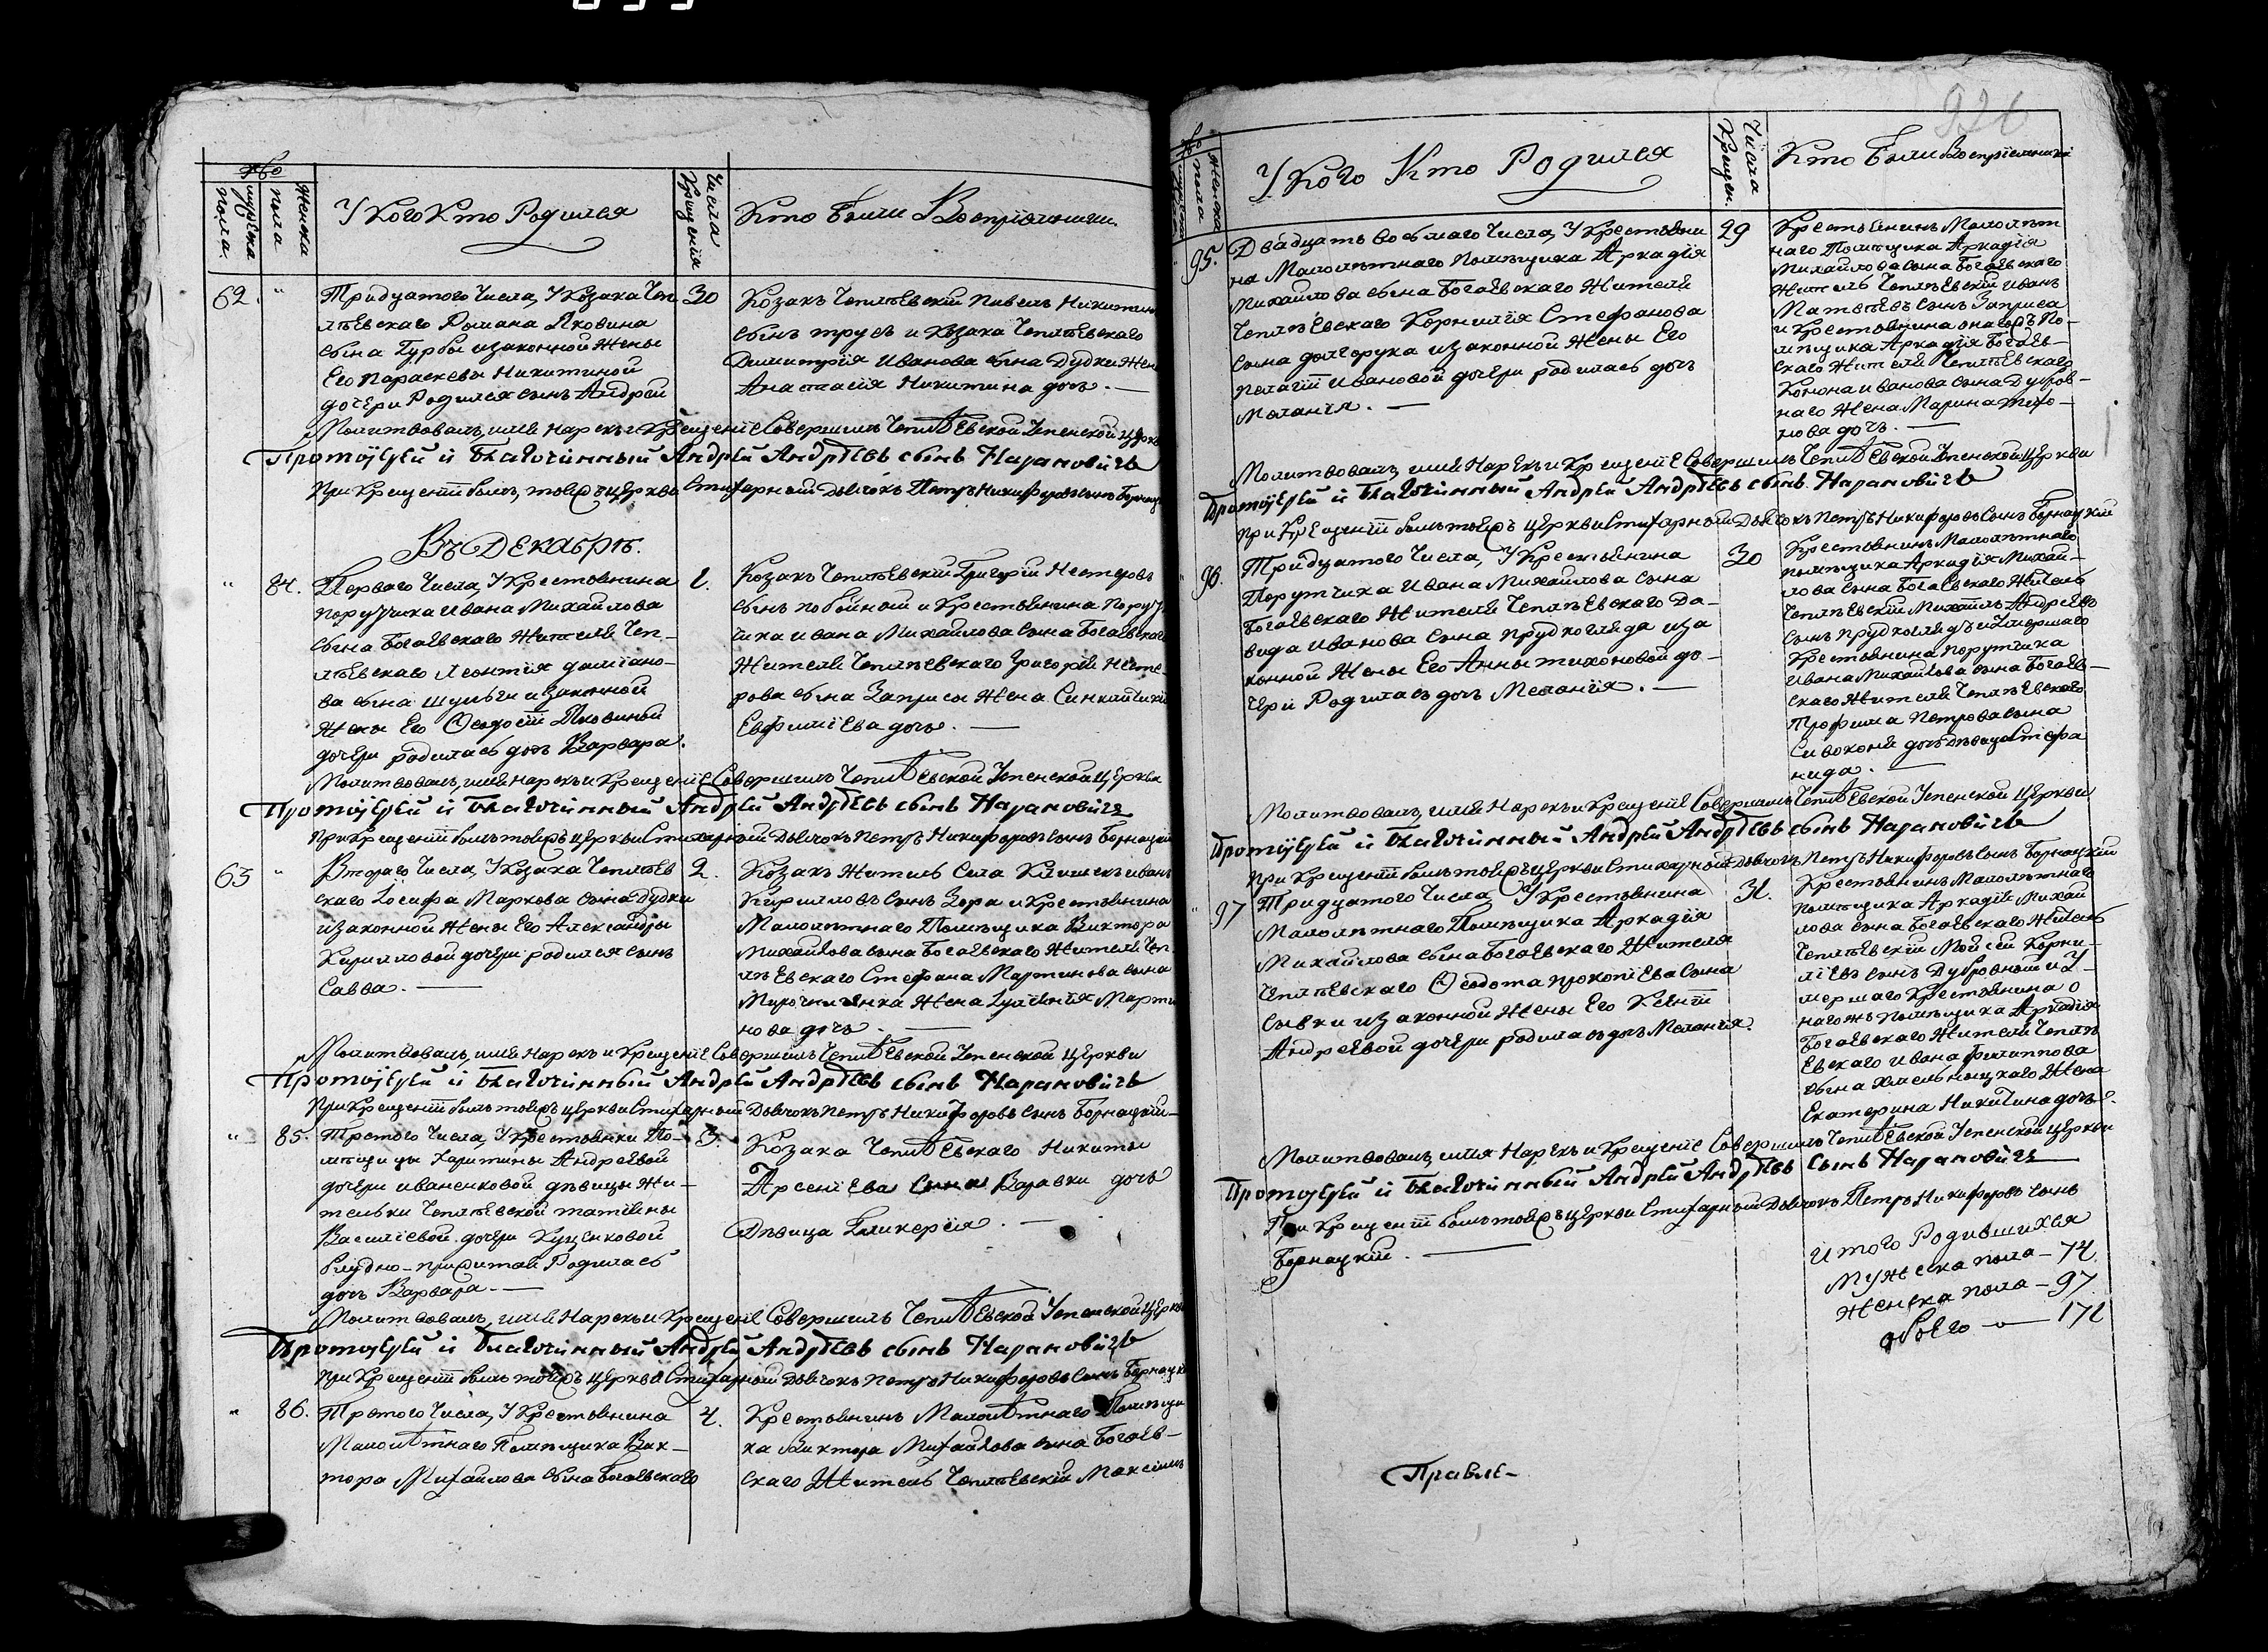 №
мужеска пола.
женска пола
У Кого Кто Родился
Числа Крещенія
Кто Были Воспріемники.
62. " Тридцатого Числа, У Козака Чеп
лѣевскаго Романа Яковина
сына Гурбы изаконной Жены
Его Параскевы Никитиной
дочери Родился сынъ Андрей
30
Козакъ Чеплѣевскій Павелъ Никитинъ
сынъ трусъ и Козака Чеплѣевскаго
Димитрія Иванова сына Дудки Жена
Анастасія Никитина дочь. —
Молитвовалъ, имя Нарекъ и Крещеніе Совершилъ Чеплѣевской Успенской церкви
Протоіерей и Благочинный Андрей Андрѣевъ сынъ Нарановичъ
При Крещеніи былъ тоейжъ церкви Стихарный Дьячокъ Петръ Никифоровъ сынъ
Въ Декабрѣ.
" 84. Перваго Числа, У Крестьянина
поручика Ивана Михайлова
сына Богаевскаго Жителя Чеп-
лѣевскаго Леонтія даміано-
ва сына шульги изаконной
Жены Его Ѳеодосіи Яковиной
дочери родилась дочь Варвара.
1.
Козакъ Чеплѣевскій Григорій Нестеровъ
сынъ побойный и Крестьянина Поруч
ика Ивана Михайлова сына Богаевскаго
Жителя Чеплѣевскаго Григорія Несте-
рова сына Заприсы Жена
Евфиміева дочь. —
Молитвовалъ, имя Нарекъ и Крещеніе Совершилъ Чеплѣевской Успенской Церкви
Протоіерей и Благочинный Андрей Андрѣевъ сынъ Нарановичъ
При Крещеніи былъ тоейжъ церкви Стихарный Дьячокъ Петръ Никифоровъ сынъ Борнацкій
63 " Втораго Числа, У Козака Чеплѣев
скаго Іосифа Маркова сына Дудки
изаконной Жены Его Александры
Кирилловой дочери родился сынъ
Савва. —
2.
Козакъ Житель Села Клишекъ иванъ
Кирилловъ сынъ Зора и Крестьянина
Малолѣтнаго Помѣщика Виктора
Михайлова сына Богаевскаго Жителя Чеп
лѣевскаго Стефана Мартинова сына
Жена Іуліанія Марти
нова дочь. —
Молитвовалъ, имя Нарекъ и Крещеніе Совершилъ Чеплѣевской Успенской Церкви
Протоіерей и Благочинный Андрей Андрѣевъ сынъ Нарановичъ
При Крещеніи былъ тоейжъ церкви Стихарный Дьячокъ Петръ Никифоровъ сынъ Борнацкій
" 85. Третого Числа, У Крестьянки По-
мѣщицы Харитины Андреевой
дочери иваненковой дѣвицы Жи-
тельки Чеплѣевской татіаны
Василіевой дочери Куценковой
блудно-прижитая Родилась
дочь Варвара. —
3.
Козака Чеплѣевскаго Никиты
Арсеніева сына Варавки дочь
Дѣвица Гликерія. —
Молитвовалъ, имя Нарекъ и Крещеніе Совершилъ Чеплѣевской Успенской Церкви
Протоіерей и Благочинный Андрей Андрѣевъ сынъ Нарановичъ
При Крещеніи былъ тоейжъ церкви Стихарный Дьячокъ Петръ Никифоровъ сынъ Борнацкій
" 86. Третого Числа, У Крестьянина
Малолѣтнаго Помѣщика Вик-
тора Михайлова сына Богаевскаго
4.
Крестьянинъ Малолѣтнаго Помѣщи
ка Виктора Михайлова сына Богаев-
скаго Житель Чеплѣевскій Максимъ
женска пола
У Кого Кто Родился
Числа Крещен.
Кто Были Воспріемники
95. Двадцать Осьмаго Числа, У Крестьяни
на Малолѣтнаго Помѣщика Аркадія
Михайлова сына Богаевскаго Жителя
Чеплѣевскаго Корнилія Стефанова
Сына долгорука изаконной Жены Его
Пелагіи Ивановой дочери родилась дочь
Меланія. —
29
Крестьянинъ Малолѣт
наго Помѣщика Аркадія
Михайлова сына Богаевскаго
Житель Чеплѣевскій иванъ
Матвѣевъ сынъ Заприса
и Крестьянина онагожъ По-
мѣщика Аркадія Богаев-
скаго Жителя Чеплѣевскаго
Конона иванова сына Дубров-
наго Жена Марина
нова дочь. —
Молитвовалъ, имя Нарекъ и Крещеніе Совершилъ Чеплѣевской Успенской Церкви
Протоіерей и Благочинный Андрей Андрѣевъ сынъ Нарановичъ
При Крещеніи былъ тоейжъ церкви Стихарный Дьячокъ Петръ Никифоровъ Сынъ Борнацкій
96. Тридцатого Числа, У Крестьянина
Порутчика Ивана Михайлова Сына
Богаевскаго Жителя Чеплѣевскаго Да-
вида Иванова сына прудкогляда иза
конной Жены Его Анны тихоновой до-
чери Родилась дочь Меланія. —
30
Крестьянинъ Малолѣтнаго
помѣщика Аркадія Михай-
лова сына Богаевскаго Житель
Чеплѣевскій Михаилъ Андреевъ
сынъ прудкоглядъ и Умершаго
Крестьянина порутчика
Ивана Михайлова сына Богаев-
скаго Жителя Чеплѣевскаго
Трофима Петрова сына
Сивоконя дочь дѣвица Стефа
нида. —
Молитвовалъ, имя Нарекъ и Крещеніе Совершилъ Чеплѣевской Успенской Церкви
Протоіерей и Благочинный Андрей Андрѣевъ сынъ Нарановичъ
При Крещеніи былъ тоейжъ церкви Стихарный Дьячокъ Петръ Никифоровъ Сынъ Борнацкій
" 97 Тридцатого Числа, У Крестьянина
Малолѣтнаго Помѣщика Аркадія
Михайлова сына Богаевскаго Жителя
Чеплѣевскаго Ѳеодота прокопіева сына
Сывки изаконной Жены Его Ксеніи
Андреевой дочери родилась дочь Меланія.
31.
Крестьянинъ Малолѣтнаго
помѣщика Аркадія Михай
лова сына Богаевскаго Житель
Чеплѣевскій Мойсей Корни-
ліевъ сынъ Дубровный и У-
мершаго Крестьянина о
нагожъ помѣщика Аркадія
Богаевскаго Жителя Чеплѣ
евскаго Ивана филиппова
сына хмельныцкаго Жена
Екатерина Никитина дочь.
Молитвовалъ, имя Нарекъ и Крещеніе Совершилъ Чеплѣевской Успенской Церкви
Протоіерей и Благочинный Андрей Андрѣевъ Сынъ Нарановичъ
При Крещеніи былъ тоейжъ церкви Стихарный Дьячокъ Петръ Никифоровъ Сынъ
Борнацкій. —
Итого Родившихся
Мужеска пола — 74
Женска пола — 97
обоего — 171
Правле-